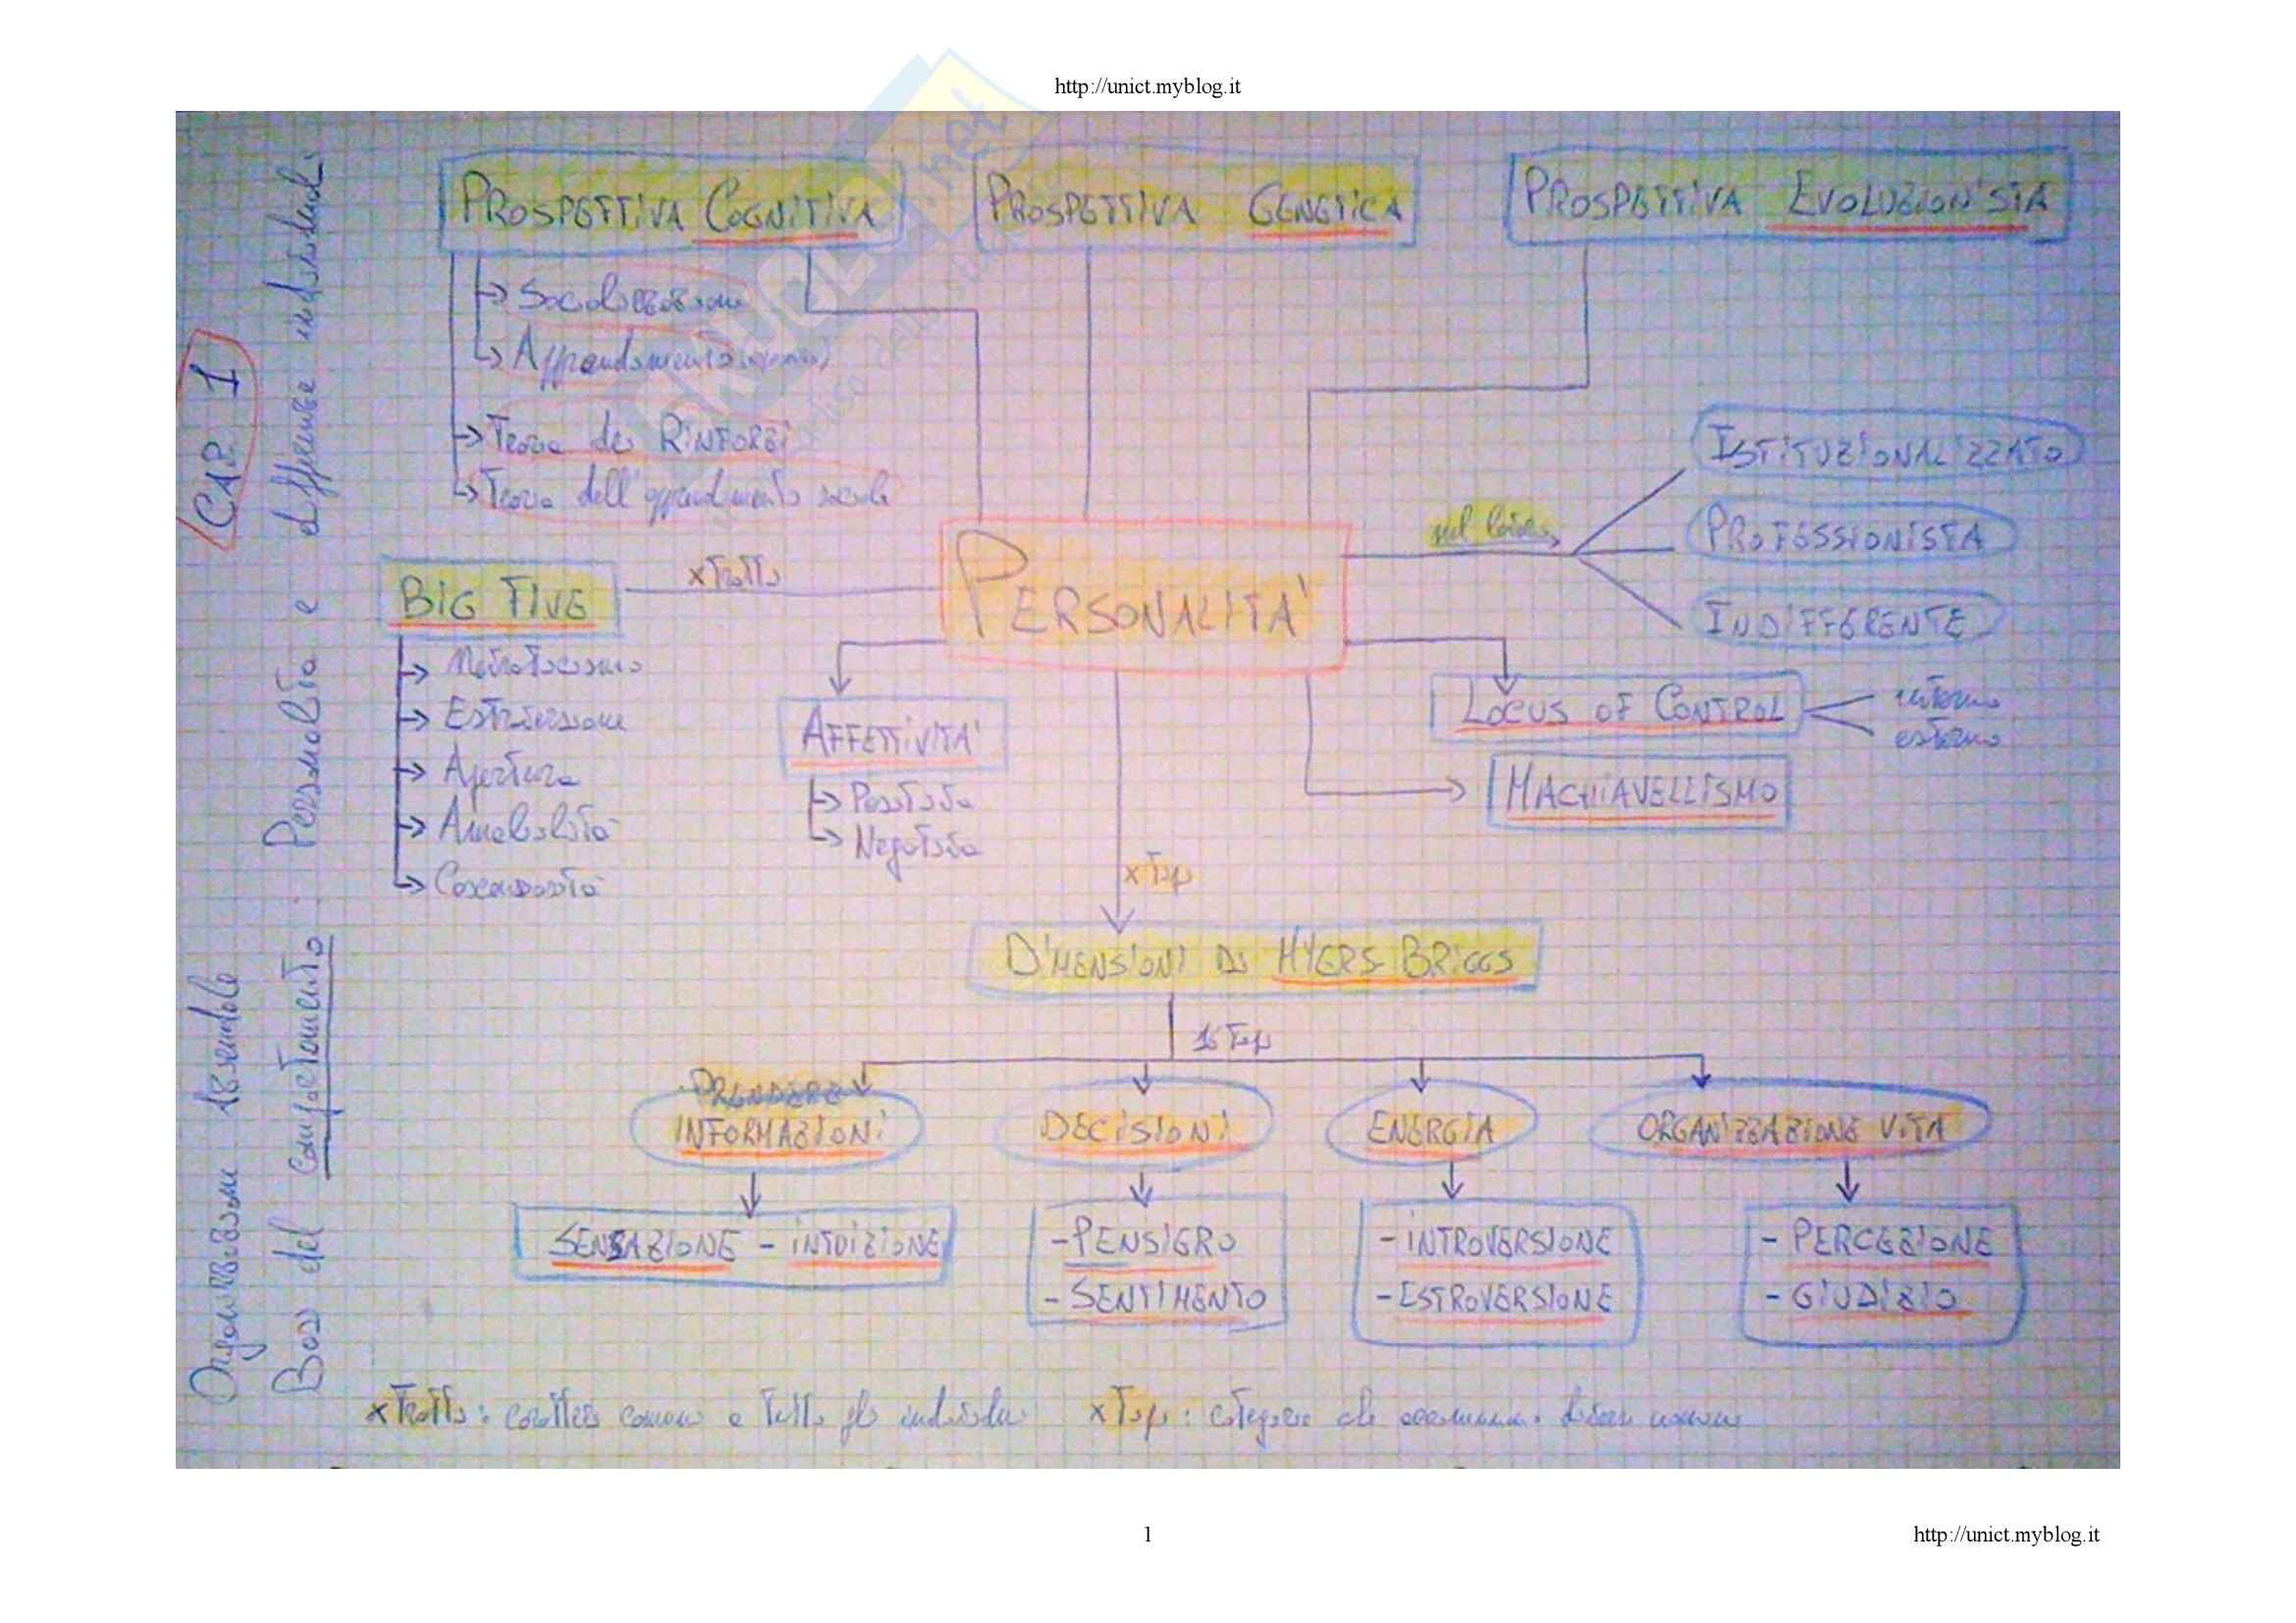 http://unict.myblog.it
CAP. 1
Organizzazione Aziendale
Basi del comportamento. Personalità e differenze individuali.
PROSPETTIVA COGNITIVA
PROSPETTIVA GENETICA
PROSPETTIVA EVOLUZIONISTA
→ Socializzazione
→ Apprendimento
→ Teoria dei RINFORZI
→ Teoria dell'apprendimento sociale
ISTITUZIONALIZZATO
nel lavoro
PROFESSIONISTA
INDIFFERENTE
BIG FIVE
x Tratti
PERSONALITA'
→ Nevroticismo
→ Estroversione
→ Apertura
→ Amabilità
→ Coscienziosità
AFFETTIVITA'
→ Positiva
→ Negativa
LOCUS OF CONTROL
interno
esterno
MACHIAVELLISMO
x Tipi
DIMENSIONI DI MYERS-BRIGGS
16 Tipi
PRENDERE
INFORMAZIONI
DECISIONI
ENERGIA
ORGANIZZAZIONE VITA
SENSAZIONE - INTUIZIONE
- PENSIERO
- SENTIMENTO
- INTROVERSIONE
- ESTROVERSIONE
- PERCEZIONE
- GIUDIZIO
x Tratti: caratteri comuni a tutti gli individui
x Tipi: categorie che accomunano diversi
1
http://unict.myblog.it